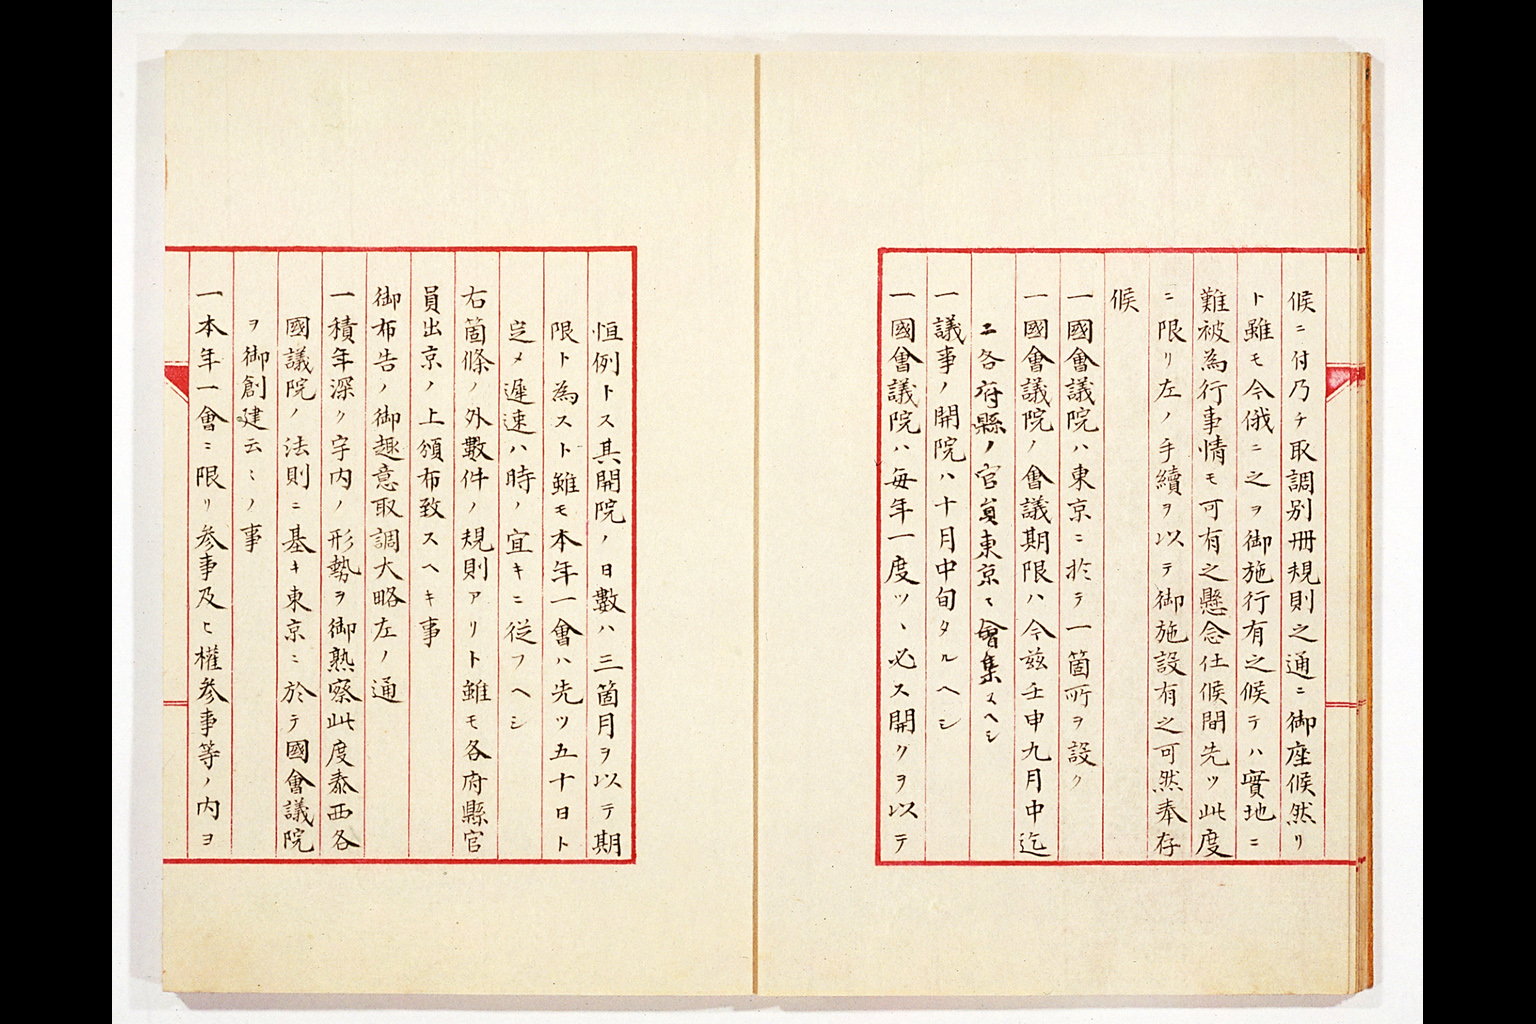 候ニ付乃チ取調別冊規則之通ニ御座候然リ
ト雖モ今俄ニ之ヲ御施行有之候テハ實地ニ
難被為行事情モ可有之懸念仕候間先ツ此度
ニ限リ左ノ手續ヲ以テ御施設有之可然奉存
候
一國會議院ハ東京ニ於テ一箇所ヲ設ク
一國會議院ノ會議期限ハ今茲壬申九月中迄
ニ各府縣ノ官員東京ヘ會集スヘシ
一議事ノ開院ハ十月中旬タルヘシ
一國會議院ハ毎年一度ツヽ必ス開クヲ以テ
恒例トス其開院ノ日數ハ三箇月ヲ以テ期
限ト為スト雖モ本年一會ハ先ツ五十日ト
定メ遲速ハ時ノ宜キニ從フヘシ
右箇條ノ外數件ノ規則アリト雖モ各府縣官
員出京ノ上頒布致スヘキ事
御布告ノ御趣意取調大略左ノ通
一積年深ク宇内ノ形勢ヲ御熟察此度泰西各
國議院ノ法則ニ基キ東京ニ於テ國會議院
ヲ御創建云〻ノ事
一本年一會ニ限リ参事及ヒ權参事等ノ内ヨ